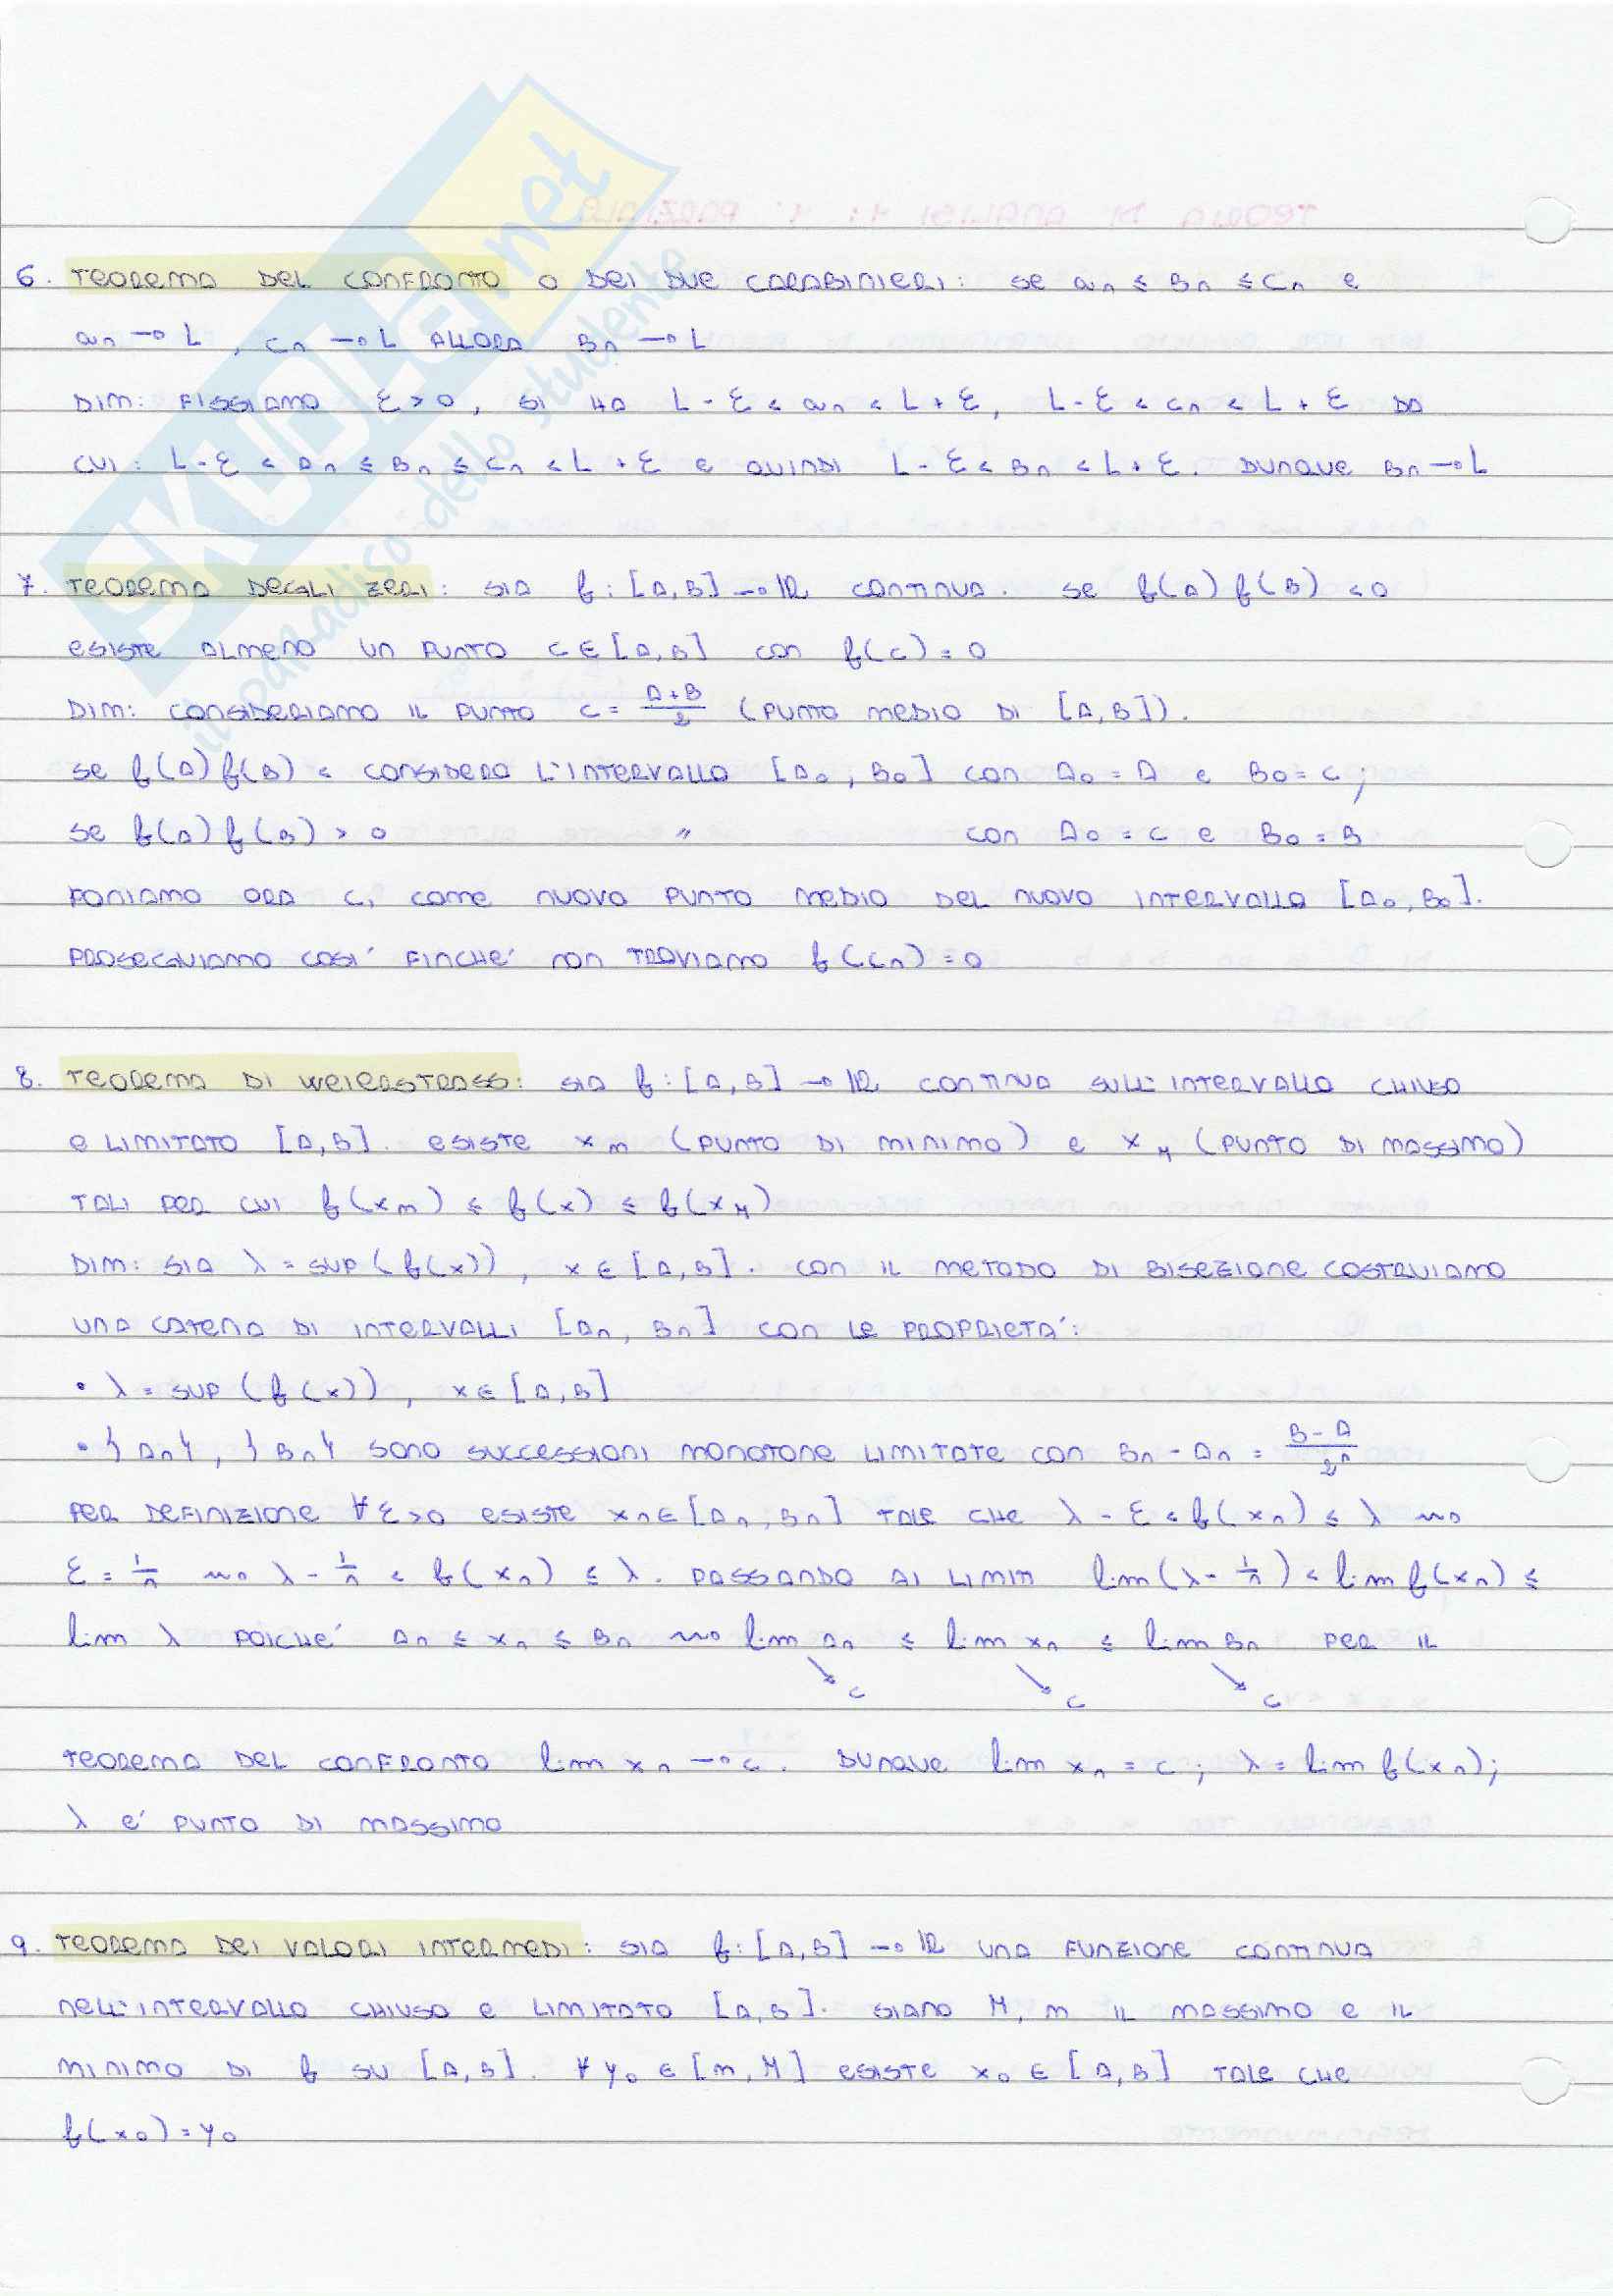 SKUOLA.net
il paradiso dello studente
TEORIA DI ANALISI 1: 1° PARZIALE
6. TEOREMA DEL CONFRONTO O DEI DUE CARABINIERI: SE an ≤ Bn ≤ Cn E
an → L, Cn → L ALLORA Bn → L
DIM: FISSIAMO ε > 0, SI HA L - ε < an < L + ε, L - ε < Cn < L + ε DA
CUI: L - ε < An ≤ Bn ≤ Cn < L + ε E QUINDI L - ε < Bn < L + ε. DUNQUE Bn → L
7. TEOREMA DEGLI ZERI: SIA f: [A,B] → ℝ CONTINUA. SE f(A) f(B) < 0
ESISTE ALMENO UN PUNTO C ∈ [A,B] CON f(C) = 0
DIM: CONSIDERIAMO IL PUNTO C = (A+B)/2 (PUNTO MEDIO DI [A,B]).
SE f(A) f(B) < CONSIDERO L'INTERVALLO [A₀, B₀] CON A₀ = A E B₀ = C;
SE f(A) f(B) > 0 " CON A₀ = C E B₀ = B
PONIAMO ORA C₁ COME NUOVO PUNTO MEDIO DEL NUOVO INTERVALLO [A₀, B₀].
PROSEGUIAMO COSI' FINCHE' NON TROVIAMO f(Cn) = 0
8. TEOREMA DI WEIERSTRASS: SIA f: [A,B] → ℝ CONTINUA SULL'INTERVALLO CHIUSO
E LIMITATO [A,B]. ESISTE xm (PUNTO DI MINIMO) E xM (PUNTO DI MASSIMO)
TALI PER CUI f(xm) ≤ f(x) ≤ f(xM)
DIM: SIA λ = SUP (f(x)), x ∈ [A,B]. CON IL METODO DI BISEZIONE COSTRUIAMO
UNA CATENA DI INTERVALLI [An, Bn] CON LE PROPRIETA':
• λ = SUP (f(x)), x ∈ [A,B]
• {An}, {Bn} SONO SUCCESSIONI MONOTONE LIMITATE CON Bn - An = (B-A)/2ⁿ
PER DEFINIZIONE ∀ε>0 ESISTE xn ∈ [An, Bn] TALE CHE λ - ε < f(xn) ≤ λ ⇝
ε = 1/n ⇝ λ - 1/n < f(xn) ≤ λ. PASSANDO AI LIMITI lim(λ - 1/n) < lim f(xn) ≤
lim λ POICHE' An ≤ xn ≤ Bn ⇝ lim An ≤ lim xn ≤ lim Bn PER IL
↘ C ↘ C ↘ C
TEOREMA DEL CONFRONTO lim xn → C. DUNQUE lim xn = C; λ = lim f(xn);
λ E' PUNTO DI MASSIMO
9. TEOREMA DEI VALORI INTERMEDI: SIA f: [A,B] → ℝ UNA FUNZIONE CONTINUA
NELL'INTERVALLO CHIUSO E LIMITATO [A,B]. SIANO M, m IL MASSIMO E IL
MINIMO DI f SU [A,B]. ∀ y₀ ∈ [m, M] ESISTE x₀ ∈ [A,B] TALE CHE
f(x₀) = y₀